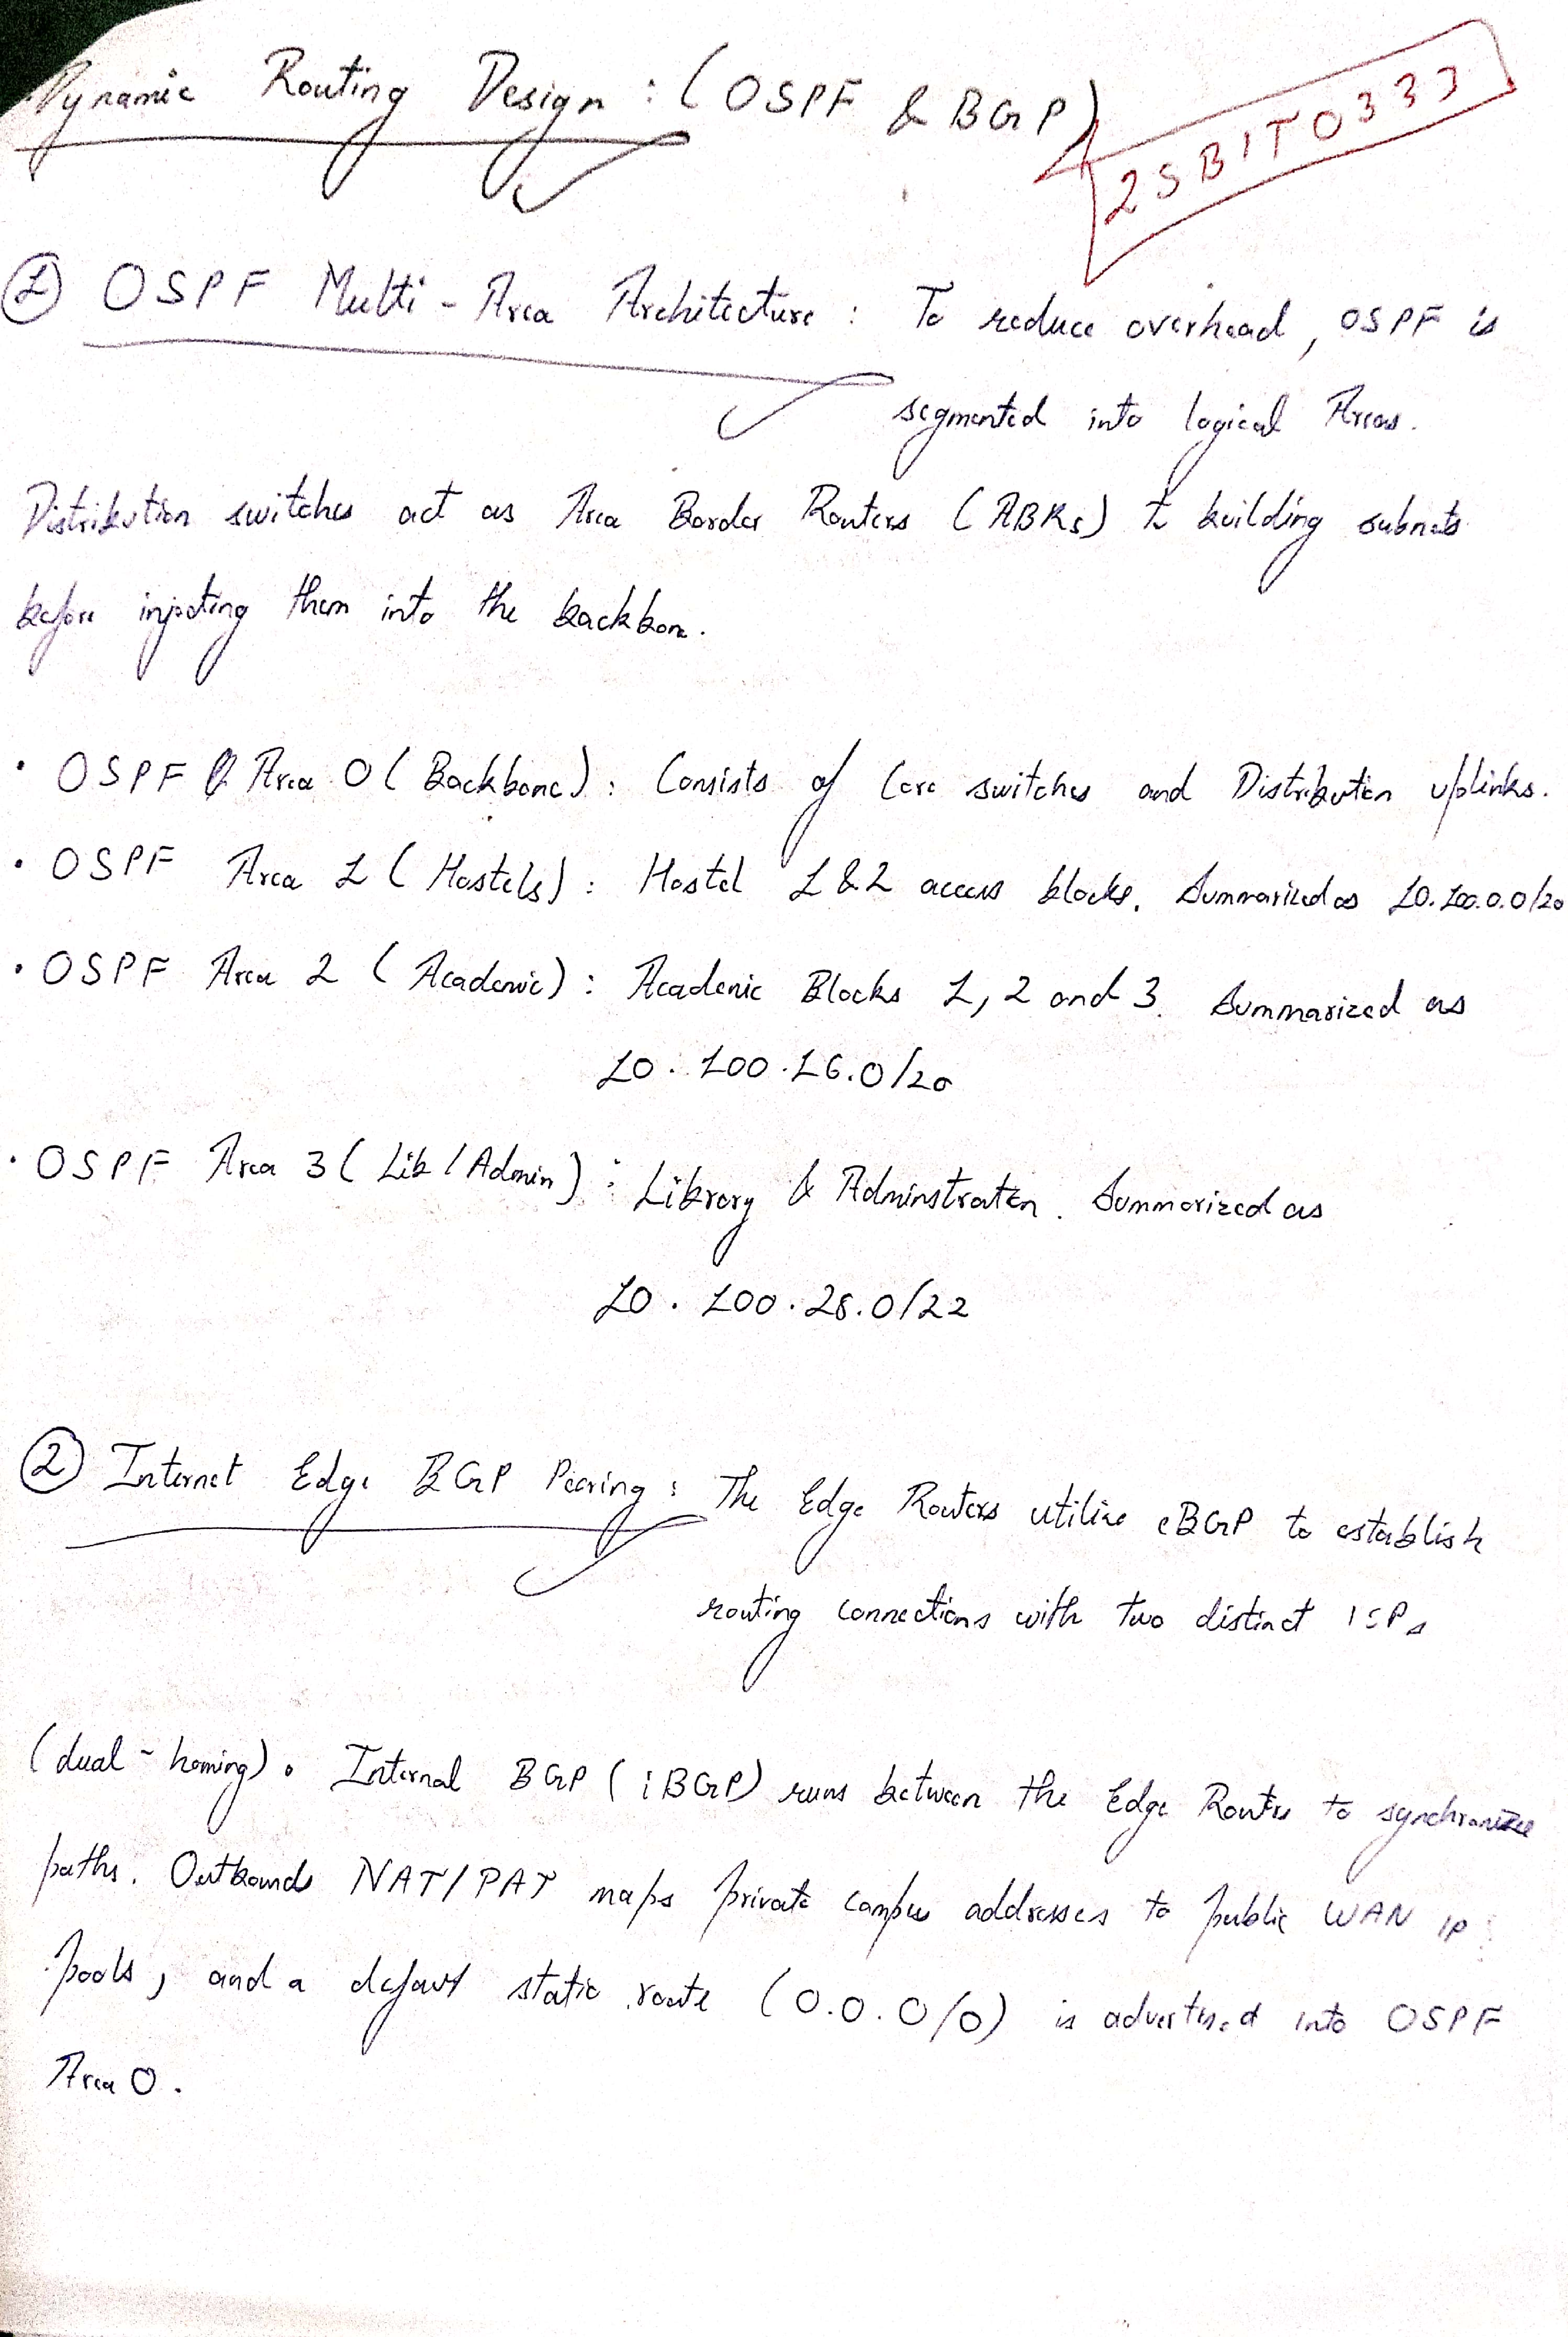 Dynamic Routing Design : (OSPF & BGP)
25BIT0333
① OSPF Multi - Area Architecture : To reduce overhead, OSPF is
segmented into logical Areas.
Distribution switches act as Area Border Routers (ABRs) to building subnets
before injecting them into the backbone.
• OSPF Area 0 (Backbone) : Consists of Core switches and Distribution uplinks.
• OSPF Area 1 (Hostels) : Hostel 1 & 2 access blocks. Summarized as 10.100.0.0/20
• OSPF Area 2 (Academic) : Academic Blocks 1, 2 and 3. Summarized as
10.100.16.0/20
• OSPF Area 3 (Lib / Admin) : Library & Adminstration. Summarized as
10.100.28.0/22
② Internet Edge BGP Peering : The Edge Routers utilize eBGP to establish
routing connections with two distinct ISPs
(dual - homing). Internal BGP (iBGP) runs between the Edge Routers to synchronize
paths. Outbounds NAT/PAT maps private campus addresses to public WAN IP
pools, and a default static route (0.0.0/0) is advertised into OSPF
Area 0.